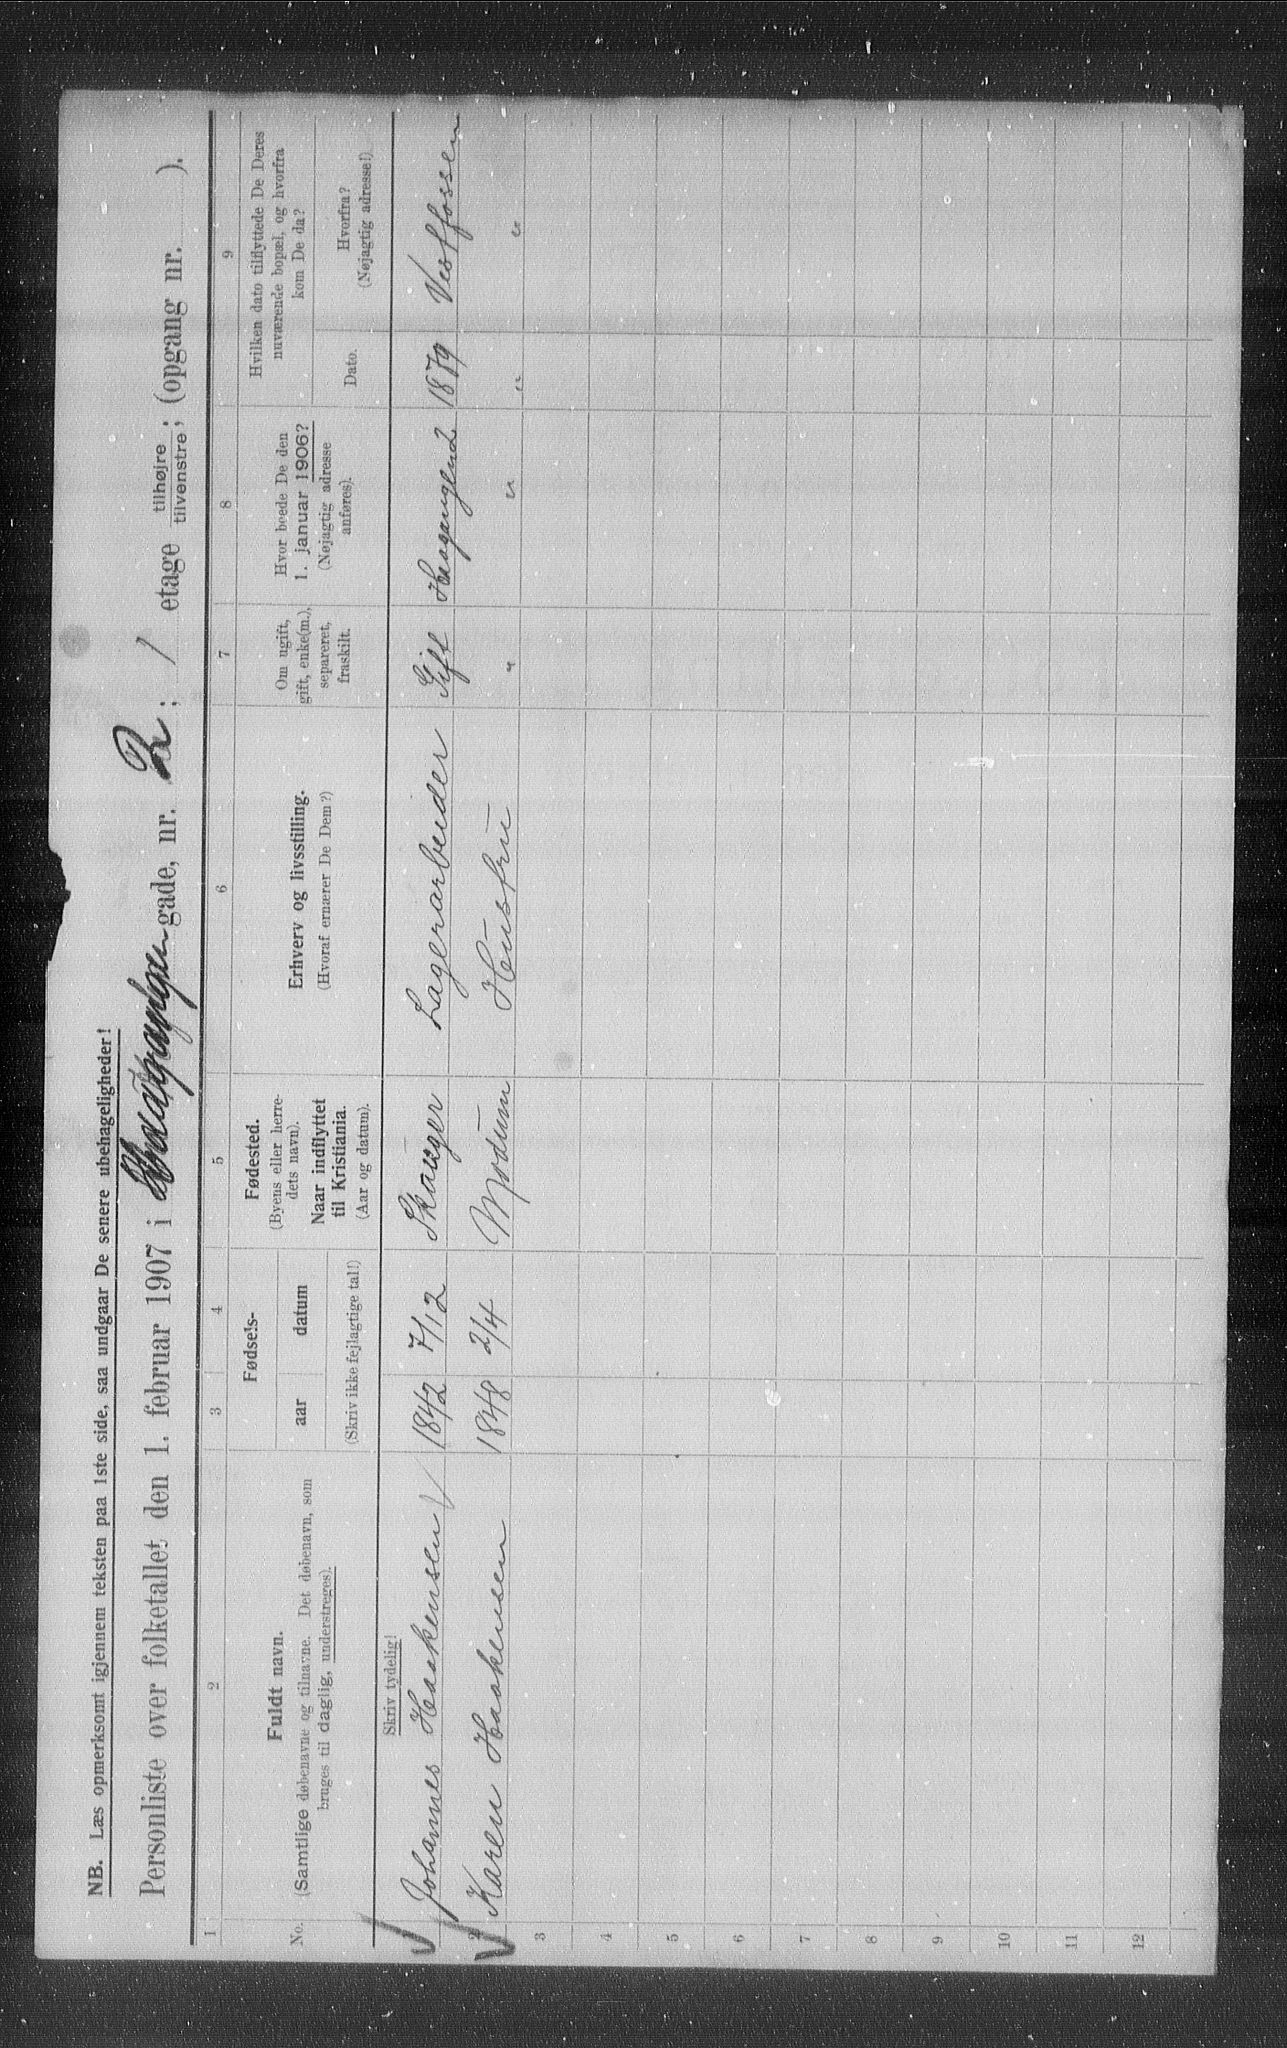 NB. Læs opmerksomt igjennem teksten paa 1ste side, saa undgaar De senere ubehageligheder!
Personliste over folketallet den 1. februar 1907 i gade, nr. 2; 1 etage tilhøjre tilvenstre; (opgang nr. ).
1 2 3 4 5 6 7 8 9
No.
Fuldt navn.
(Samtlige døbenavne og tilnavne. Det døbenavn, som
bruges til daglig, understreges).
Fødsels-
aar datum
(Skriv ikke fejlagtige tal!)
Fødested.
(Byens eller herre-
dets navn).
Naar indflyttet
til Kristiania.
(Aar og datum).
Erhverv og livsstilling.
(Hvoraf ernærer De Dem?)
Om ugift,
gift, enke(m.),
separeret,
fraskilt.
Hvor boede De den
1. januar 1906?
(Nøjagtig adresse
anføres).
Hvilken dato tilflyttede De Deres
nuværende bopæl, og hvorfra
kom De da?
Dato.
Hvorfra?
(Nøjagtig adresse!)
Skriv tydelig!
Johannes Haakensen 1842 7/12 Skauger Lagerarbeider Gift 2 1879 Vestfossen
2 Karen Haakensen 1848 2/4 Modum Hüsfrü " " " "
3
4
5
6
7
8
9
10
11
12